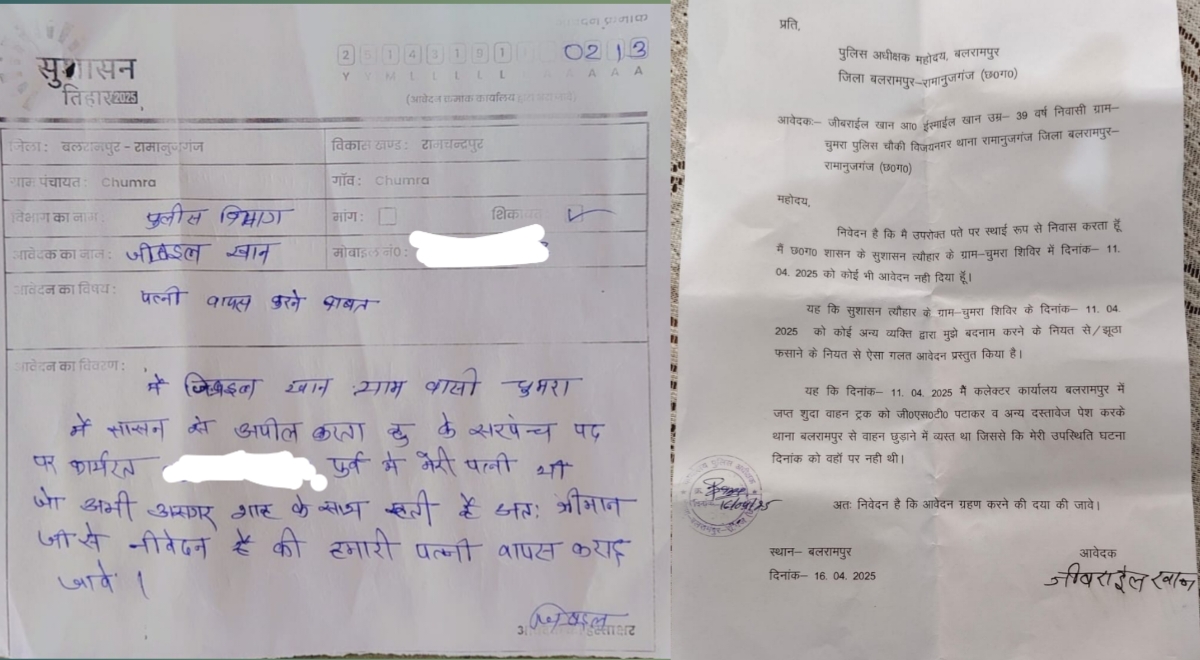 सुशासन
तिहार 2025
2 5 1 4 3 1 5 1 0213
Y Y M L L L L L A A A A
जिला: बलरामपुर - रामानुजगंज
विकास खण्ड: रामचन्द्रपुर
ग्राम पंचायत: Chumra
गाँव: Chumra
विभाग का नाम: पुलीस विभाग
मांग:
शिकायत
आवेदक का नाम: जीब्राईल खान
मोबाईल नं0:
आवेदन का विषय: पत्नी वापस करने बाबत
आवेदन का विवरण:
मै खान ग्राम वासी चुमरा
मे सासन से अपील करता हु के सरपंच पद
पर कार्यरत पुर्व मे मेरी पत्नी थी
जो अभी असगर शाह के साथ रहती है अतः श्रीमान
जी से नीवेदन है की हमारी पत्नी वापस कराइ
जावे ।
हस्ताक्षर
प्रति,
पुलिस अधीक्षक महोदय, बलरामपुर
जिला बलरामपुर–रामानुजगंज (छ0ग0)
आवेदकः– जीबराईल खान आ0 ईस्माईल खान उम्र– 39 वर्ष निवासी ग्राम–
चुमरा पुलिस चौकी विजयनगर थाना रामानुजगंज जिला बलरामपुर–
रामानुजगंज (छ0ग0)
महोदय,
निवेदन है कि मै उपरोक्त पते पर स्थाई रूप से निवास करता हूँ
मै छ0ग0 शासन के सुशासन त्यौहार के ग्राम–चुमरा शिविर में दिनांक– 11.
04. 2025 को कोई भी आवेदन नही दिया हूँ।
यह कि सुशासन त्यौहार के ग्राम–चुमरा शिविर के दिनांक– 11. 04.
2025 को कोई अन्य व्यक्ति द्वारा मुझे बदनाम करने के नियत से/झूठा
फसाने के नियत से ऐसा गलत आवेदन प्रस्तुत किया है।
यह कि दिनांक– 11. 04. 2025 मै कलेक्टर कार्यालय बलरामपुर में
जप्त शुदा वाहन ट्रक को जी0एस0टी0 पटाकर व अन्य दस्तावेज पेश करके
थाना बलरामपुर से वाहन छुड़ाने में व्यस्त था जिससे कि मेरी उपस्थिति घटना
दिनांक को वहाँ पर नही थी।
अतः निवेदन है कि आवेदन ग्रहण करने की दया की जावे।
स्थान– बलरामपुर
आवेदक
दिनांक– 16. 04. 2025
जीबराईल खान